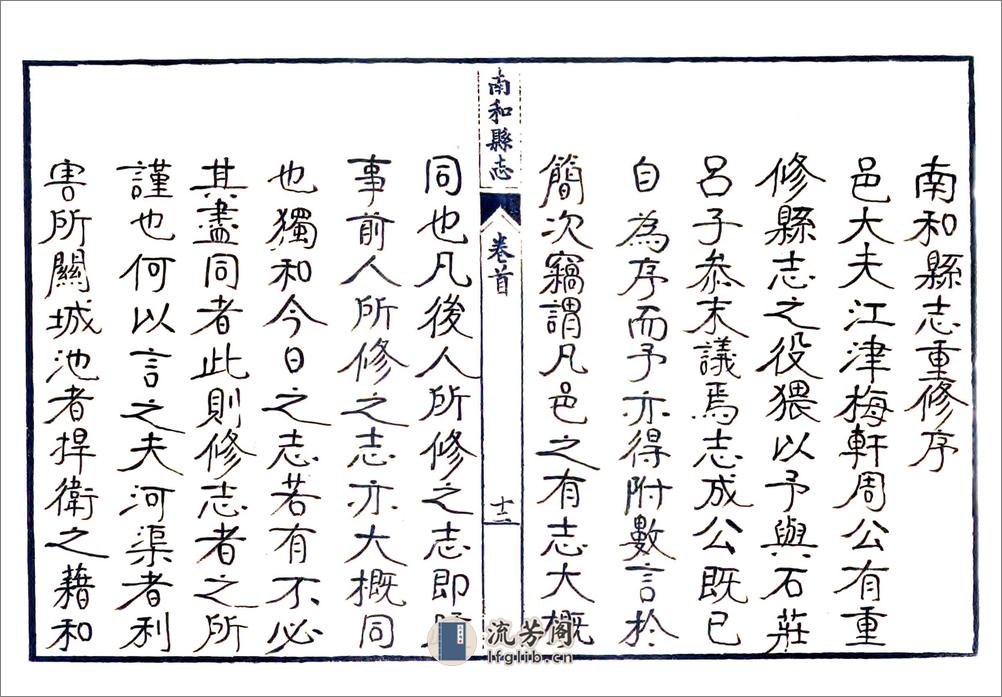 南和縣志重修序
邑大夫江津梅軒周公有重
修縣志之役猥以予與石莊
呂子叅末議焉志成公既已
自為序而予亦得附數言於
簡次竊謂凡邑之有志大概
南和縣志
卷首
十二
同也凡後人所修之志即
事前人所修之志亦大概同
也獨和今日之志若有不必
其盡同者此則修志者之所
謹也何以言之夫河渠者利
害所關城池者捍衛之藉和
流芳阁
lfglib.cn